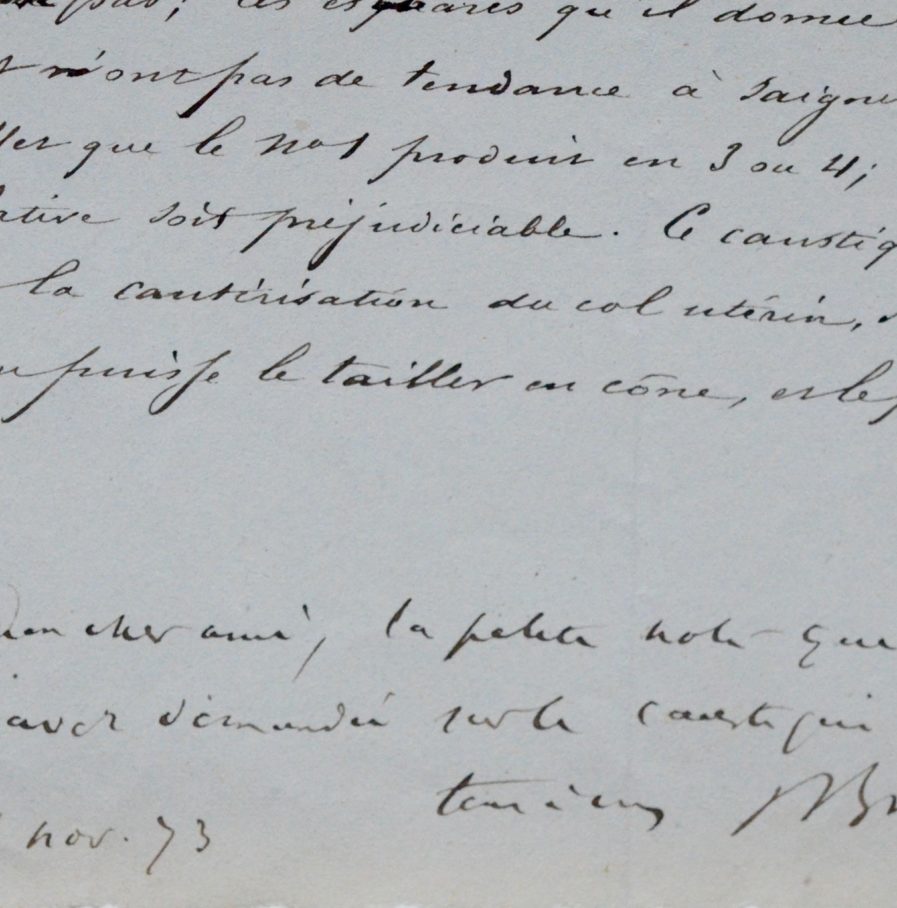 pas; les esquares qu'il donne
n'ont pas de tendance à saigne
que le no 1 produit en 3 ou 4;
ative soit préjudiciable. Ce caustiq
la cautérisation du col utérin,
puisse le tailler en cône, est le
mon cher ami, la petite note que
avez demandée sur le caustique
nov. 73